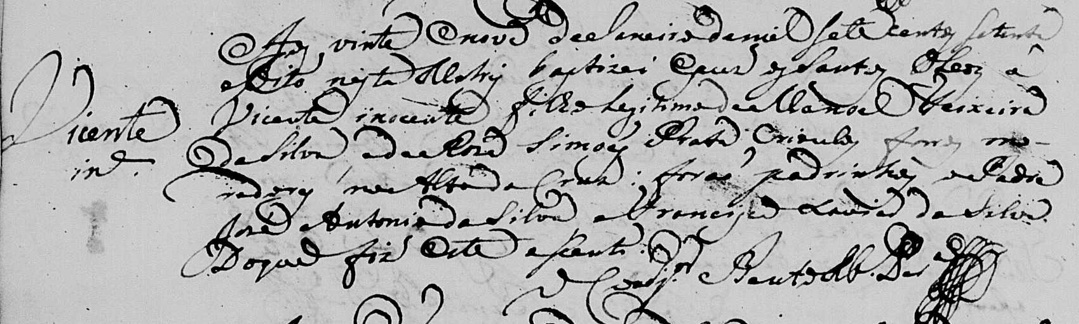 Aos vinte e nove de Janeiro de mil sete centos setenta
e oito nesta Matriz baptizei e puz os Santos Oleos a
Vicente inocente filho legitimo de Manoel Teixeira
da Silva e de Roza Simoes Prata Crioulos forros mo-
radores no Alto da Cruz: foraõ padrinhos o Padre
José Antonio da Silva e Francisco Xavier da Silva.
Do que fiz este assento.
O Coadj.or
Vicente
in.e